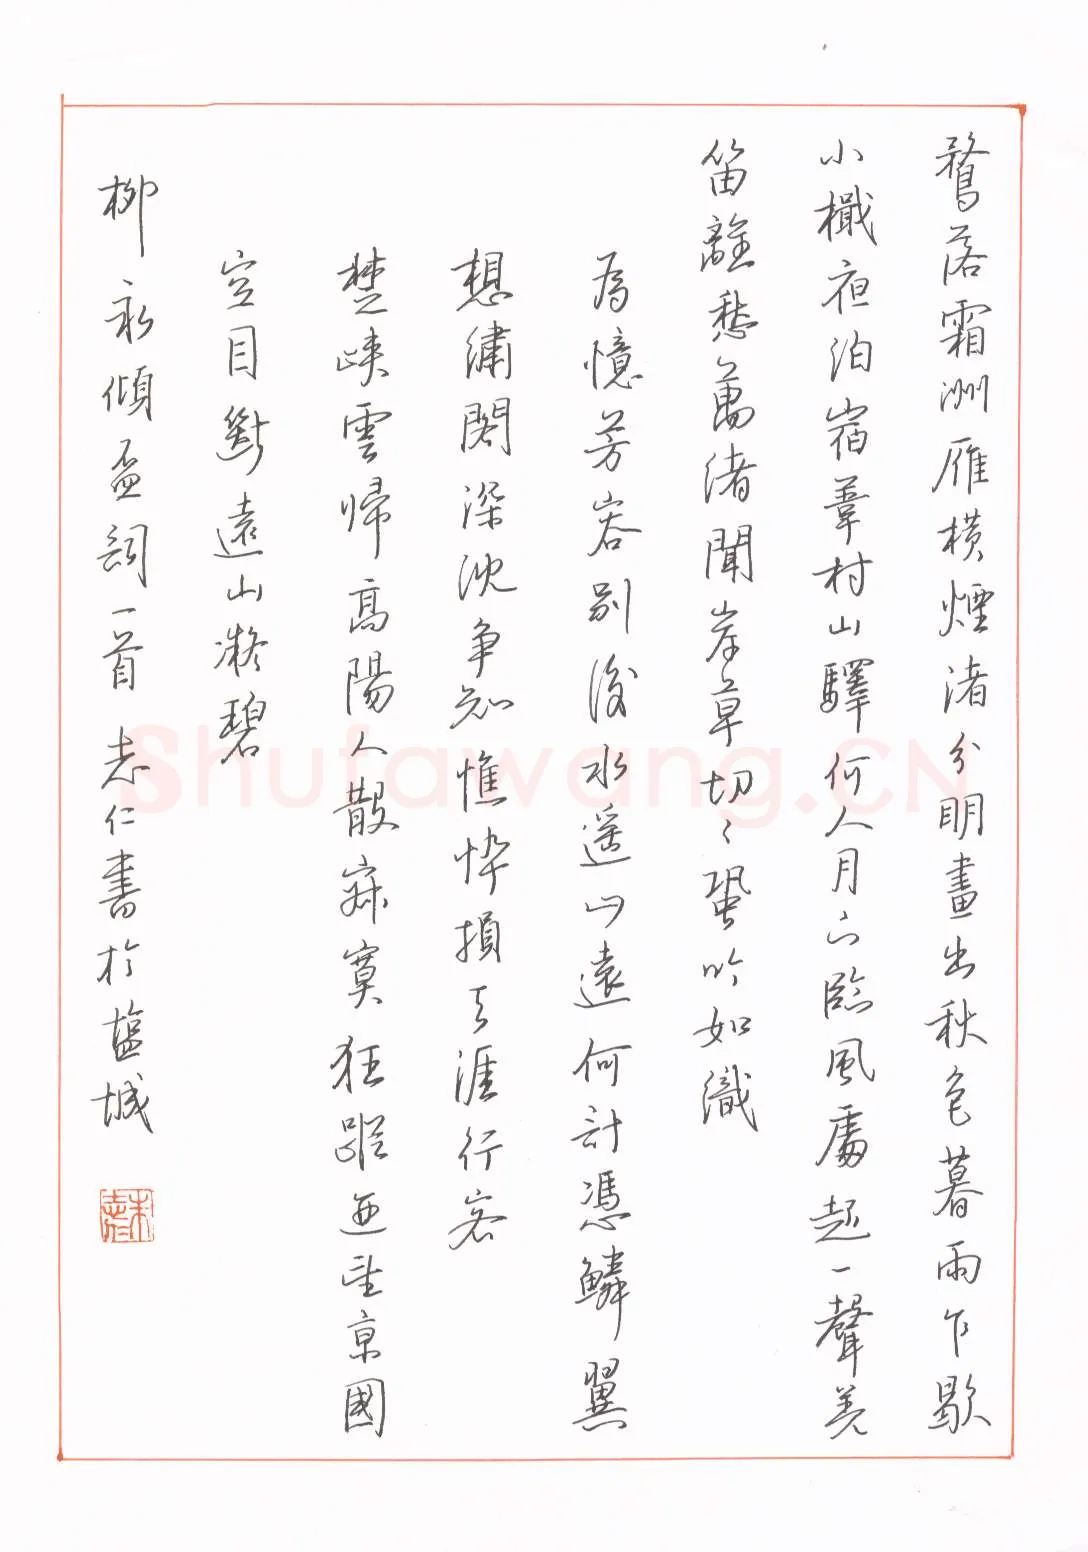 鶩落霜洲雁橫煙渚分明畫出秋色暮雨乍歇
小檝夜泊宿葦村山驛何人月下臨風處起一聲羌
笛離愁萬緒聞岸草切〻蛩吟如織
為憶芳容別後水遥山遠何計憑鱗翼
想繡閣深沈争知憔悴損天涯行客
楚峽雲歸高陽人散寂寞狂蹤亜望京國
空目斷遠山凝碧
柳永傾盃詞一首志仁書於鹽城
朱志仁
Shufawang.CN